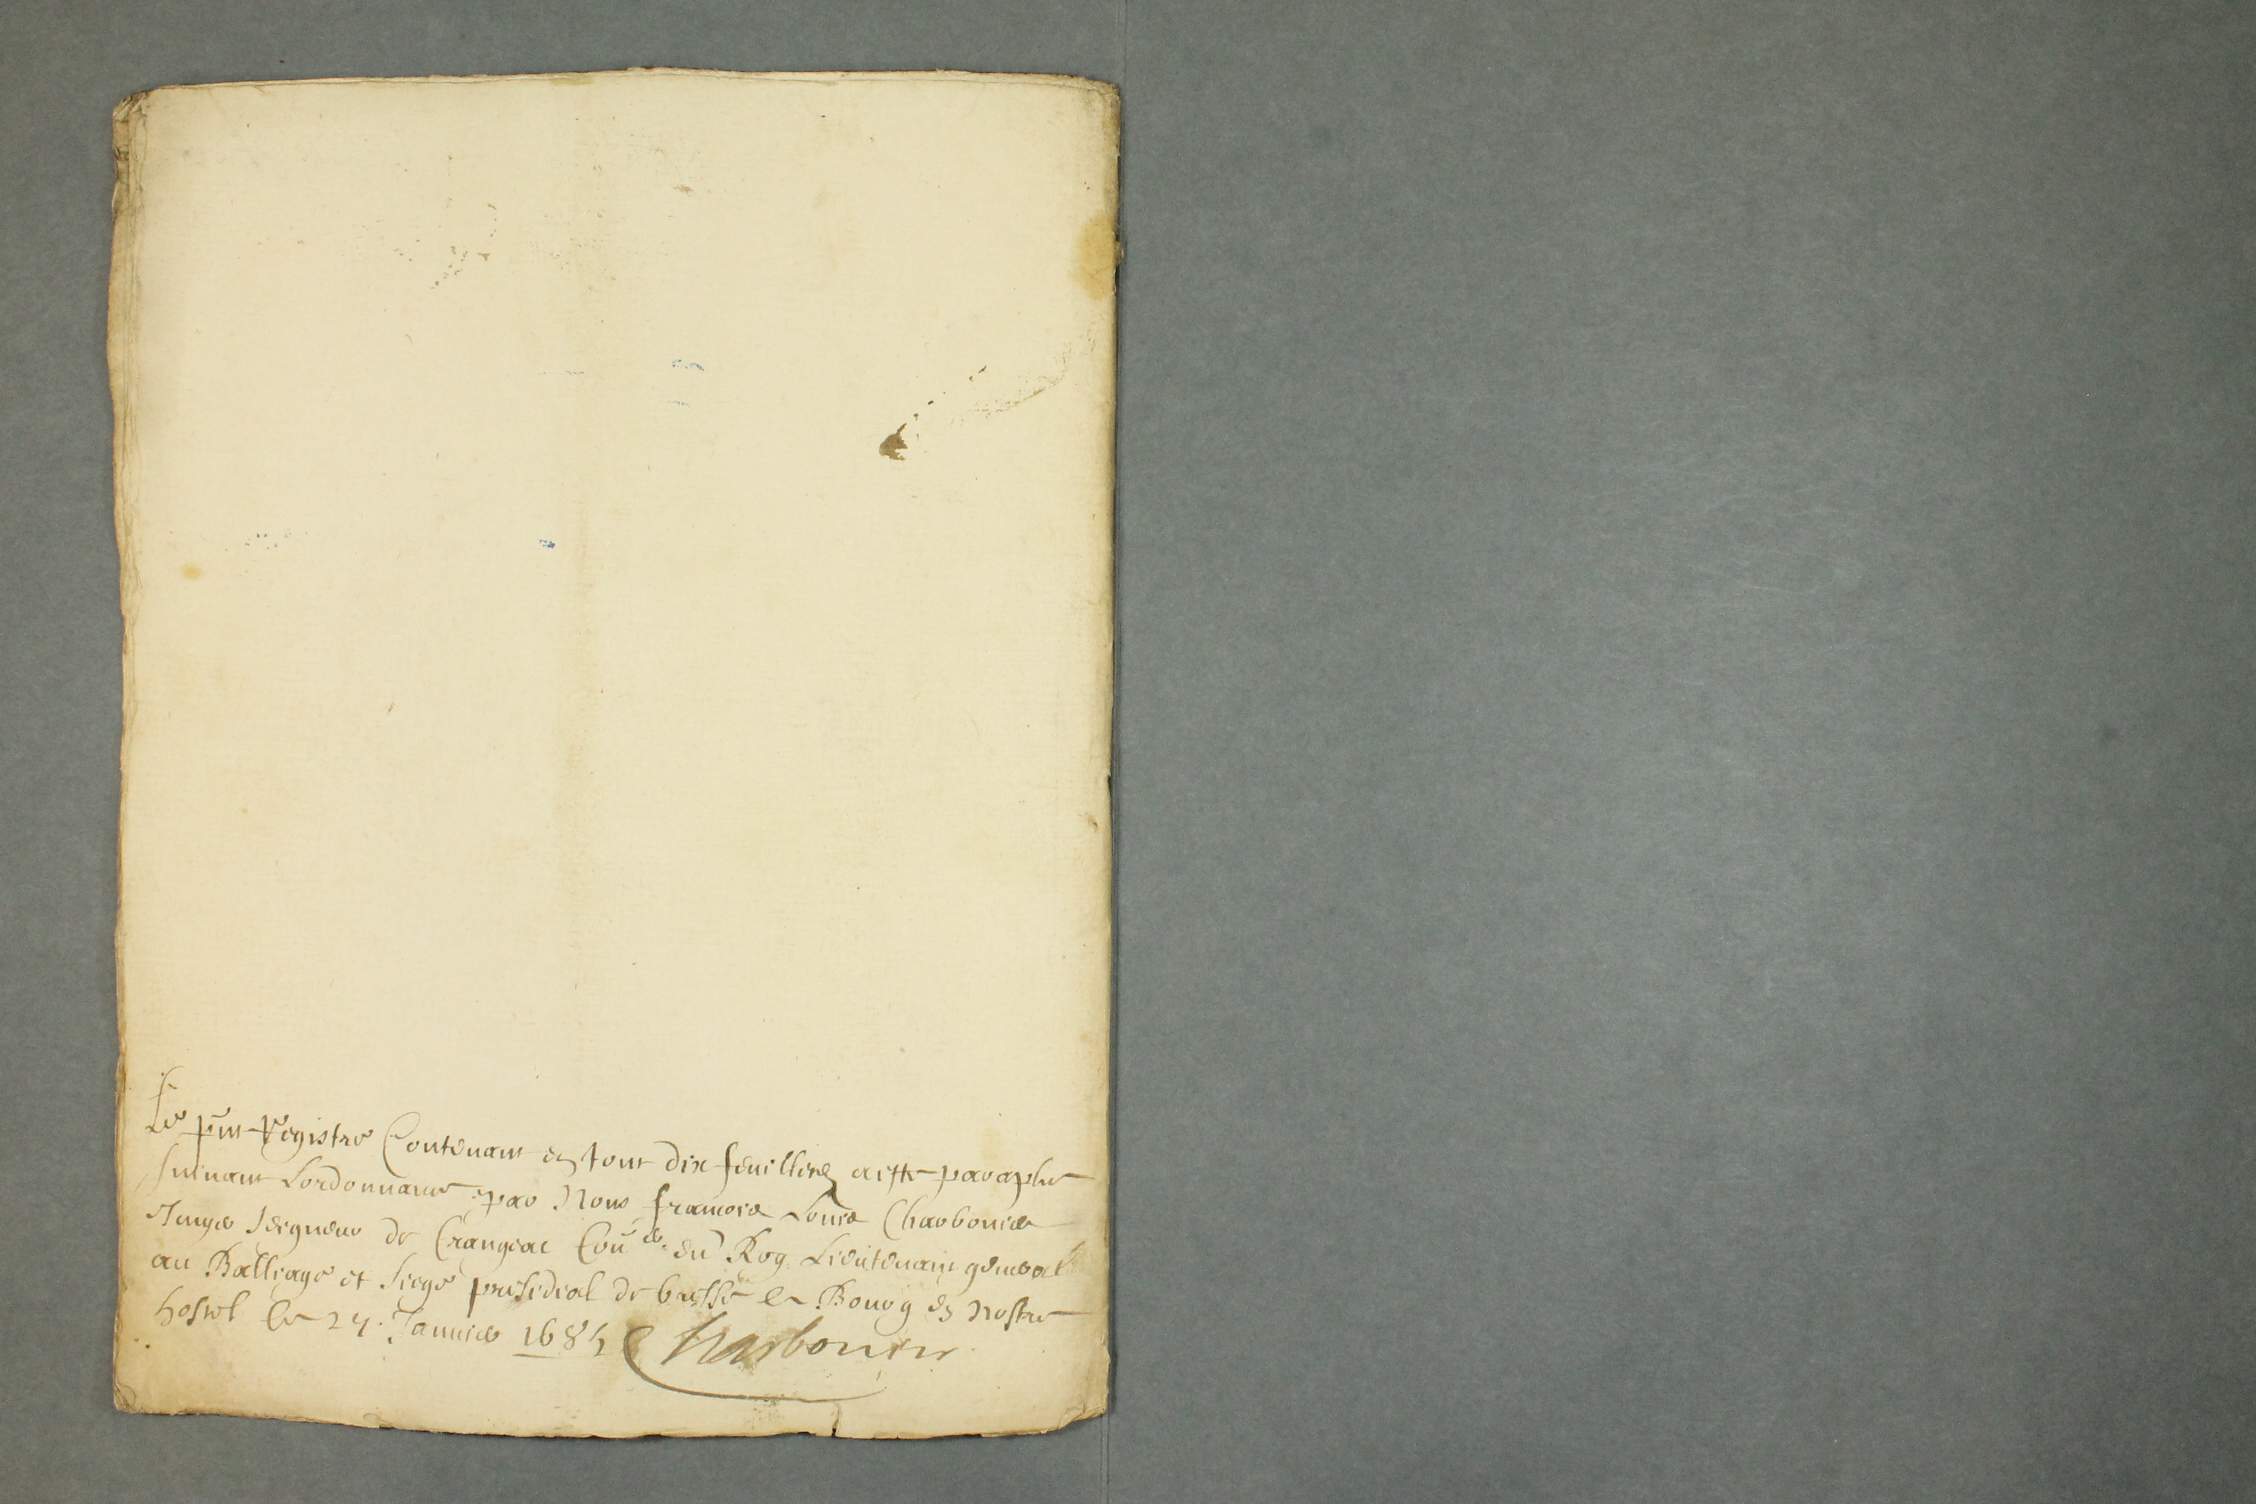 Le pnt Registre Contenant en tout dix feuillets a este paraphe
suivant Lordonnance par Nous francois Louis Charbonier
Juge Seigneur de Crangeac Con.er du Roy Lieutenant general
au Balliage et siege presidial de bresse a Bourg en nostre
hostel le 24. Janvier 1685
Charbonier